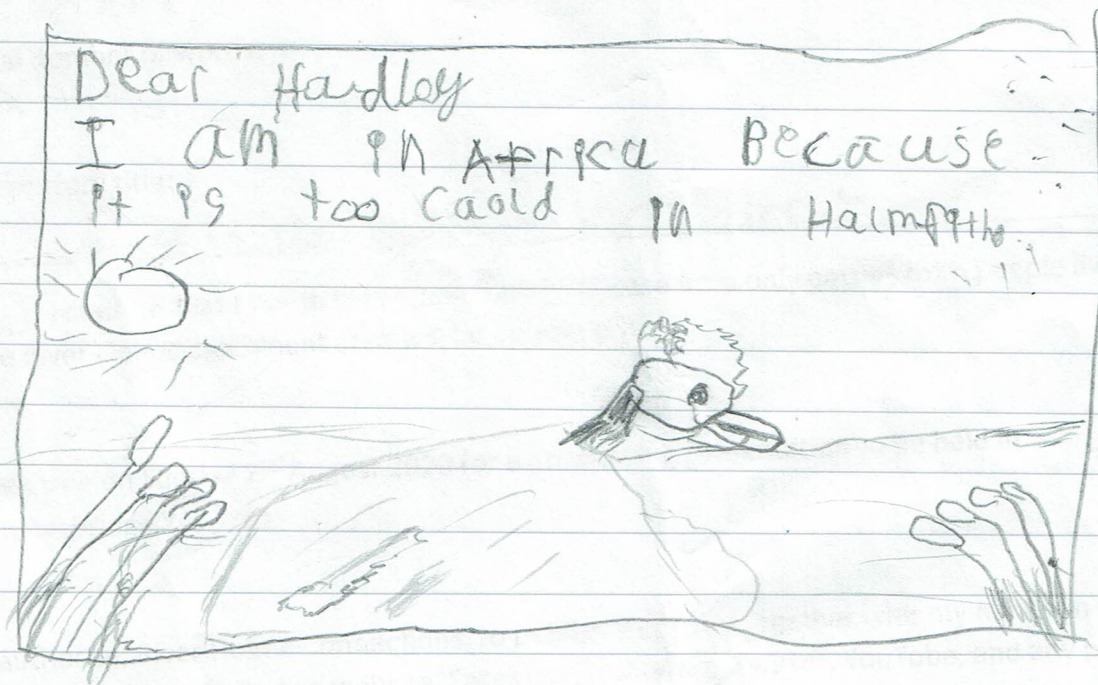 Dear Hardley
I am in Africa Because
it is too caold in Halmpith